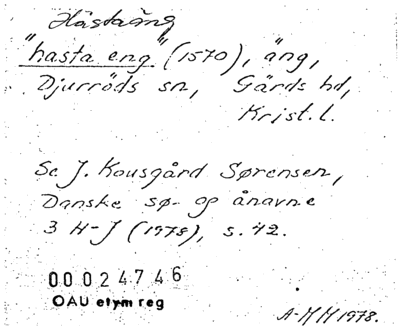 Hästaäng
"hasta eng" (1570), äng,
Djurröds sn, Gärds hd,
Krist. l.
Se J. Kousgård Sørensen,
Danske sø- og ånavne
3 H-J (1978), s. 42.
00024746
OAU etym reg
A-MM 1978.